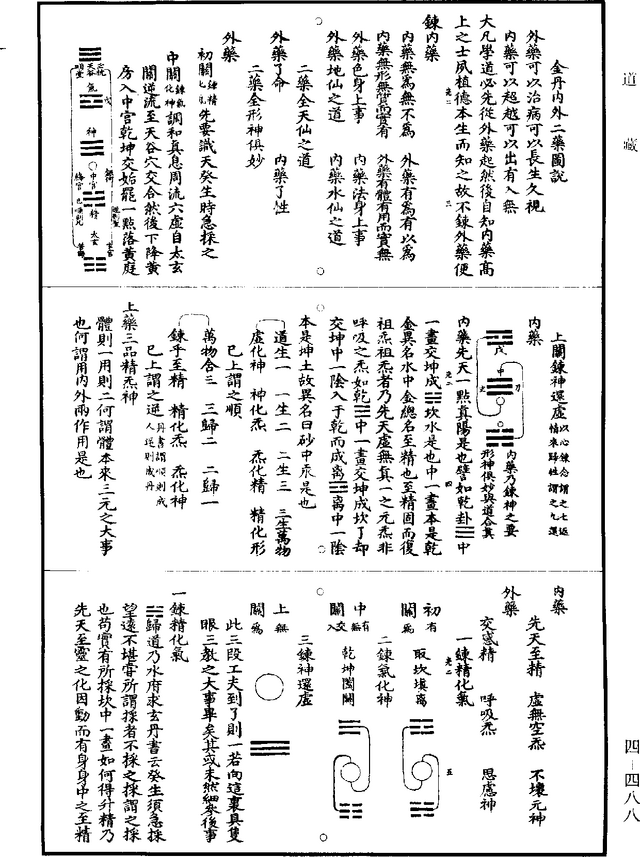 道藏
金丹內外二藥圖說
外藥可以治病可以長生久視
內藥可以超越可以出有入無
大凡學道必先從外藥起然後自知內藥高
上之士夙植德本生而知之故不鍊外藥便
鍊內藥
內藥無為無不為　外藥有為有以為
內藥無形無質而實有　外藥有體有用而實無
外藥色身上事　內藥法身上事
外藥地仙之道　內藥水仙之道
二藥全天仙之道
外藥了命　內藥了性
二藥全形神俱妙
外藥
初關鍊精化氣先要識天癸生時急採之
中關鍊氣化神調和真息周流六虛自太玄
關逆流至天谷穴交合然後下降黃
房入中宮乾坤交姤罷一點落黃庭
氣
神
中宮
精
太玄
上關鍊神還虛以心鍊念謂之七返情來歸性謂之九還
內藥
戊
中
內藥乃鍊神之要
形神俱妙與道合真
內藥先天一點真陽是也譬如乾卦☰中
一畫交坤成☵坎水是也中一畫本是乾
金異名水中金總名至精也至精固而復
祖炁祖炁者乃先天虛無真一之元炁非
呼吸之炁如乾☰中一畫交坤成坎了却
交坤中一陰入于乾而成離☲離中一陰
本是坤土故異名曰砂中汞是也
道生一　一生二　二生三　三生萬物
虛化神　神化炁　炁化精　精化形
已上謂之順
萬物含三　三歸二　二歸一
鍊乎至精　精化炁　炁化神
已上謂之逆丹書謂順則成人逆則成丹
上藥三品精炁神
體則一用則二何謂體本來三元之大事
也何謂用內外兩作用是也
內藥
先天至精　虛無空炁　不壞元神
外藥
交感精　呼吸炁　思慮神
一鍊精化氣
初關有為　取坎填離
二鍊氣化神
中關有無交入　乾坤闔闢
三鍊神還虛
上關無為
此三段工夫到了則一若向這裏具隻
眼三教之大事畢矣其或未然細參後事
一鍊精化氣
☵歸道乃水府求玄丹書云癸生須急採
望遠不堪嘗所謂採者不採之採謂之採
也苟實有所採坎中一畫如何得升精乃
先天至靈之化因動而有身身中之至精
四—四八八